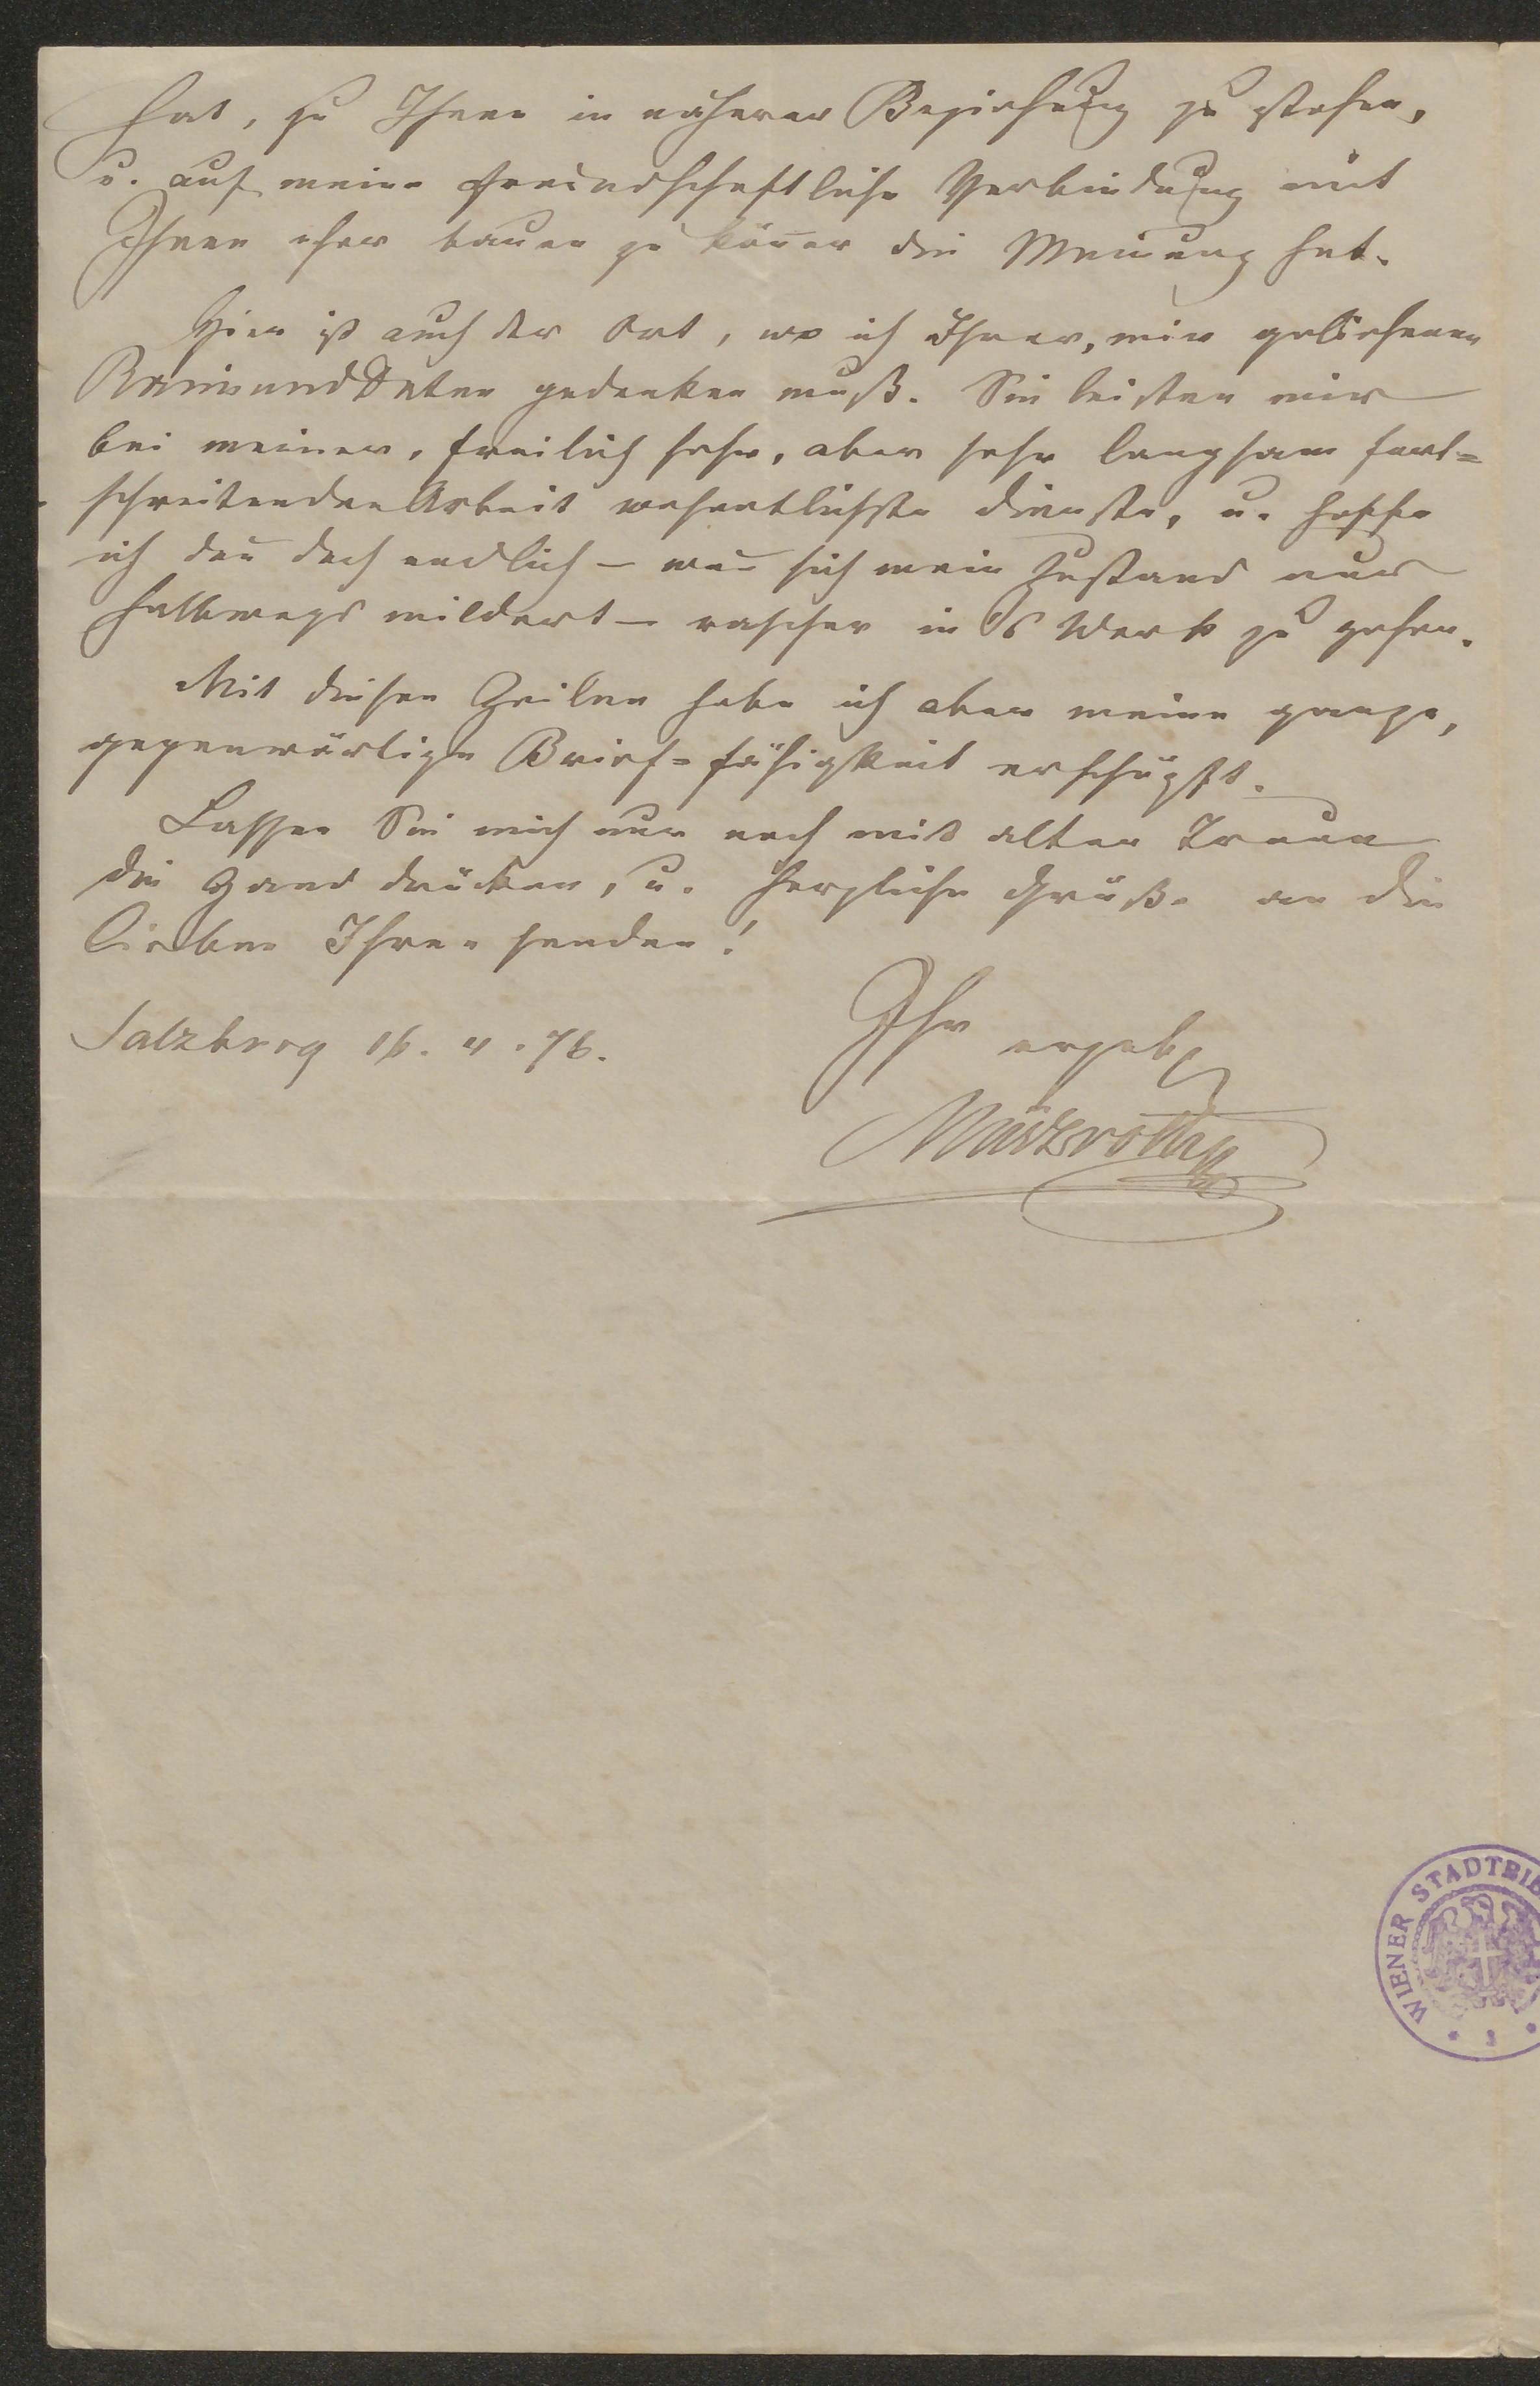 hat, zu Ihnen in näherer Beziehung zu stehen,
u. auf meine freundschaftliche Verbindung mit
Ihnen eher bauen zu köñen die Meinung hat.
Hier ist auch der Ort, wo ich Ihrer, mir geliehenen
Raimund Daten gedenken muß. Sie leisten mir
bei meiner, freilich sehr, aber sehr langsam fort=
schreitenden Arbeit wesentlichste Dienste, u. hoffe
ich deñ doch endlich – weñ sich mein Zustand nur
halbwegs mildert – rascher in's Werk zu gehen.
Mit diesen Zeilen habe ich aber meine ganze,
gegenwärtige Brief=fähigkeit erschöpft.
Lassen Sie mich nur noch mit alter Treue
die Hand drücken, u. herzliche Grüße an die
lieben Ihren senden!
Salzburg 16. 4. 76.
Ihr ergeb
Märzroth
WIENER STADTBIB